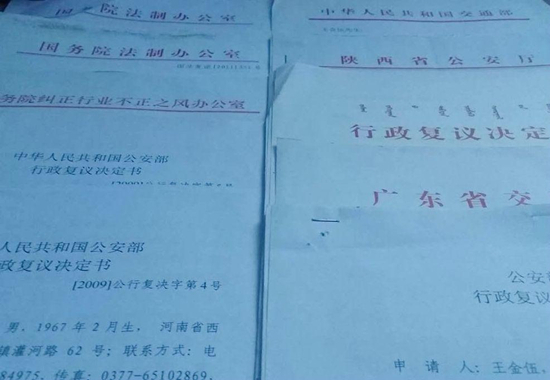 国务院法制办公室
国务院法制办公室
务院纠正行业不正之风办公室
中华人民共和国公安部
行政复议决定书
人民共和国公安部
政复议决定书
[2009]公行复决字第4号
男，1967年2月生，河南省西
镇灌河路62号；联系方式：电
84975，传真：0377-65102869，
中华人民共和国交通部
陕西省公安厅
行政复议决定
广东省交
公安
行政复议
申请人：王金伍，